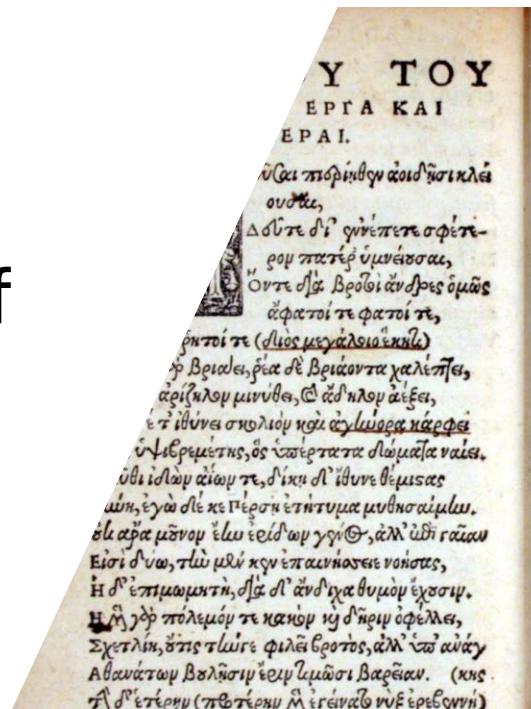 Υ ΤΟΥ
ΕΡΓΑ ΚΑΙ
ΕΡΑΙ.
f
πιερίηθεν ἀοιδῇσι κλεί
ουσαι,
Δεῦτε δί' ἐννέπετε σφέτε-
ρον πατέρ' ὑμνείουσαι,
Ὅντε διὰ βροτοὶ ἄνδρες ὁμῶς
ἄφατοί τε φατοί τε,
τε (διὸς μεγάλοιο ἕκητι)
βριάει, ῥέα δὲ βριάοντα χαλέπτει,
ἀρίζηλον μινύθει, καὶ ἄδηλον ἀέξει,
τ' ἰθύνει σκολιὸν καὶ ἀγήνορα κάρφει
ὑψιβρεμέτης, ὃς ὑπέρτατα δώματα ναίει.
ἰδὼν ἀίων τε, δίκῃ δ' ἴθυνε θέμιστας
ἐγὼ δέ κε Πέρσῃ ἐτήτυμα μυθησαίμην.
Οὐκ ἄρα μοῦνον ἔην ἐρίδων γένος, ἀλλ' ἐπὶ γαῖαν
Εἰσὶ δύω, τὴν μέν κεν ἐπαινήσειε νοήσας,
Ἡ δ' ἐπιμωμητὴ, διὰ δ' ἄνδιχα θυμὸν ἔχουσιν.
Ἡ μὲν γὰρ πόλεμόν τε κακὸν καὶ δῆριν ὀφέλλει,
Σχετλίη, οὔτις τήνγε φιλεῖ βροτὸς, ἀλλ' ὑπ' ἀνάγ
Ἀθανάτων βουλῇσιν ἔριν τιμῶσι βαρεῖαν. (κης
Τὴν δ' ἑτέρην (προτέρην μὲν ἐγείνατο νὺξ ἐρεβεννὴ)